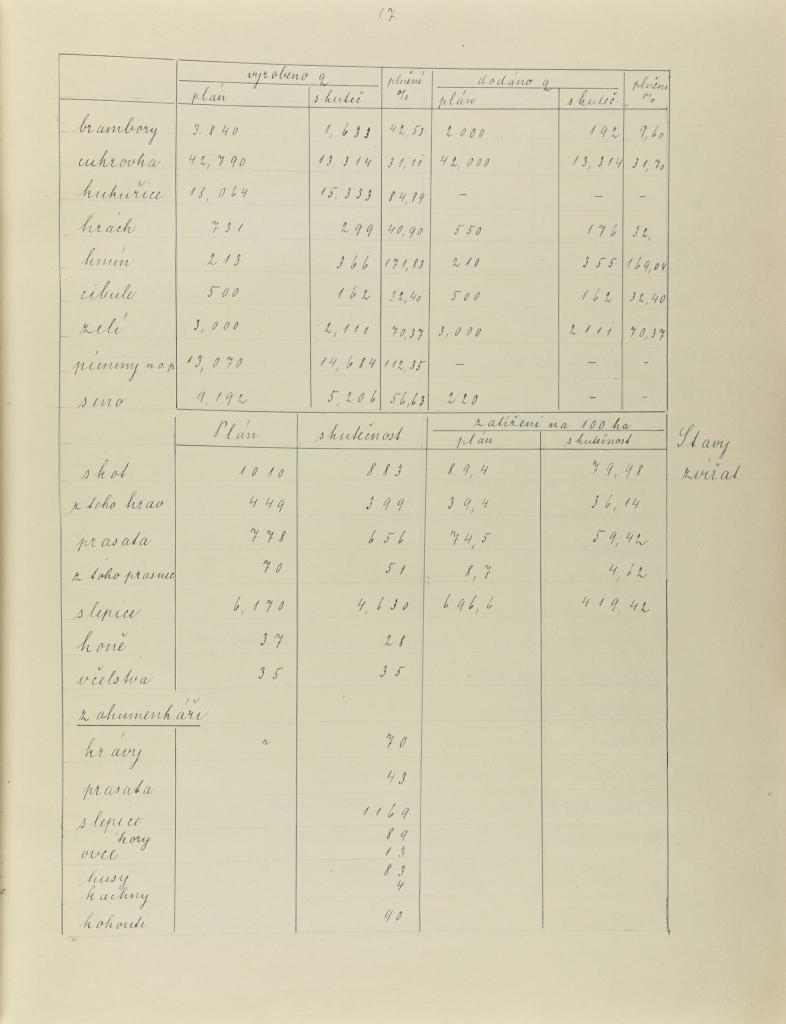 17.
vyrobeno q plnění % dodáno q plnění %
plán skuteč. plán skuteč.
brambory 3.840 1,633 42,53 2000 192 9,60
cukrovka 42,790 13,314 31,11 42,000 13,314 31,70
kukuřice 18,064 15,333 84,89 – – –
hrách 731 299 40,90 550 176 32,
kmín 213 366 171,83 210 355 169,04
cibule 500 162 32,40 500 162 32,40
zelí 3,000 2,111 70,37 3,000 2111 70,37
pícniny na o.p. 13,070 14,684 112,35 – – –
seno 9,192 5,206 56,63 220 – –
Plán skutečnost zatížení na 100 ha
plán skutečnost
Stavy
zvířat
skot 1010 883 89,4 79,98
z toho krav 449 399 39,4 36,14
prasata 778 656 74,5 59,42
z toho prasnic 70 51 8,7 4,62
slepice 6,170 4,630 696,6 419,42
koně 37 28
včelstva 35 35
záhumenkáři
krávy 70
prasata 43
slepice 1169
kozy 89
ovce 13
husy 83
kachny 4
kohouti 90